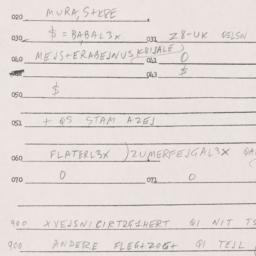 020 MURA, S+KBE
030 $ = BABAL3X 031 Z8-UK OSLSN
040 MEJS+ERABEJNUS, KBIJALE) 041 0
043 $
050 $
051 + QS STAM AZEJ
060 FLATERL3X )ZUMERFEJGAL3X
070 0 071 0
900 XVEJSNICIRTZGEHERT QI NIT TS
900 ANDERE FLEG+ZOG+ QI TEJL